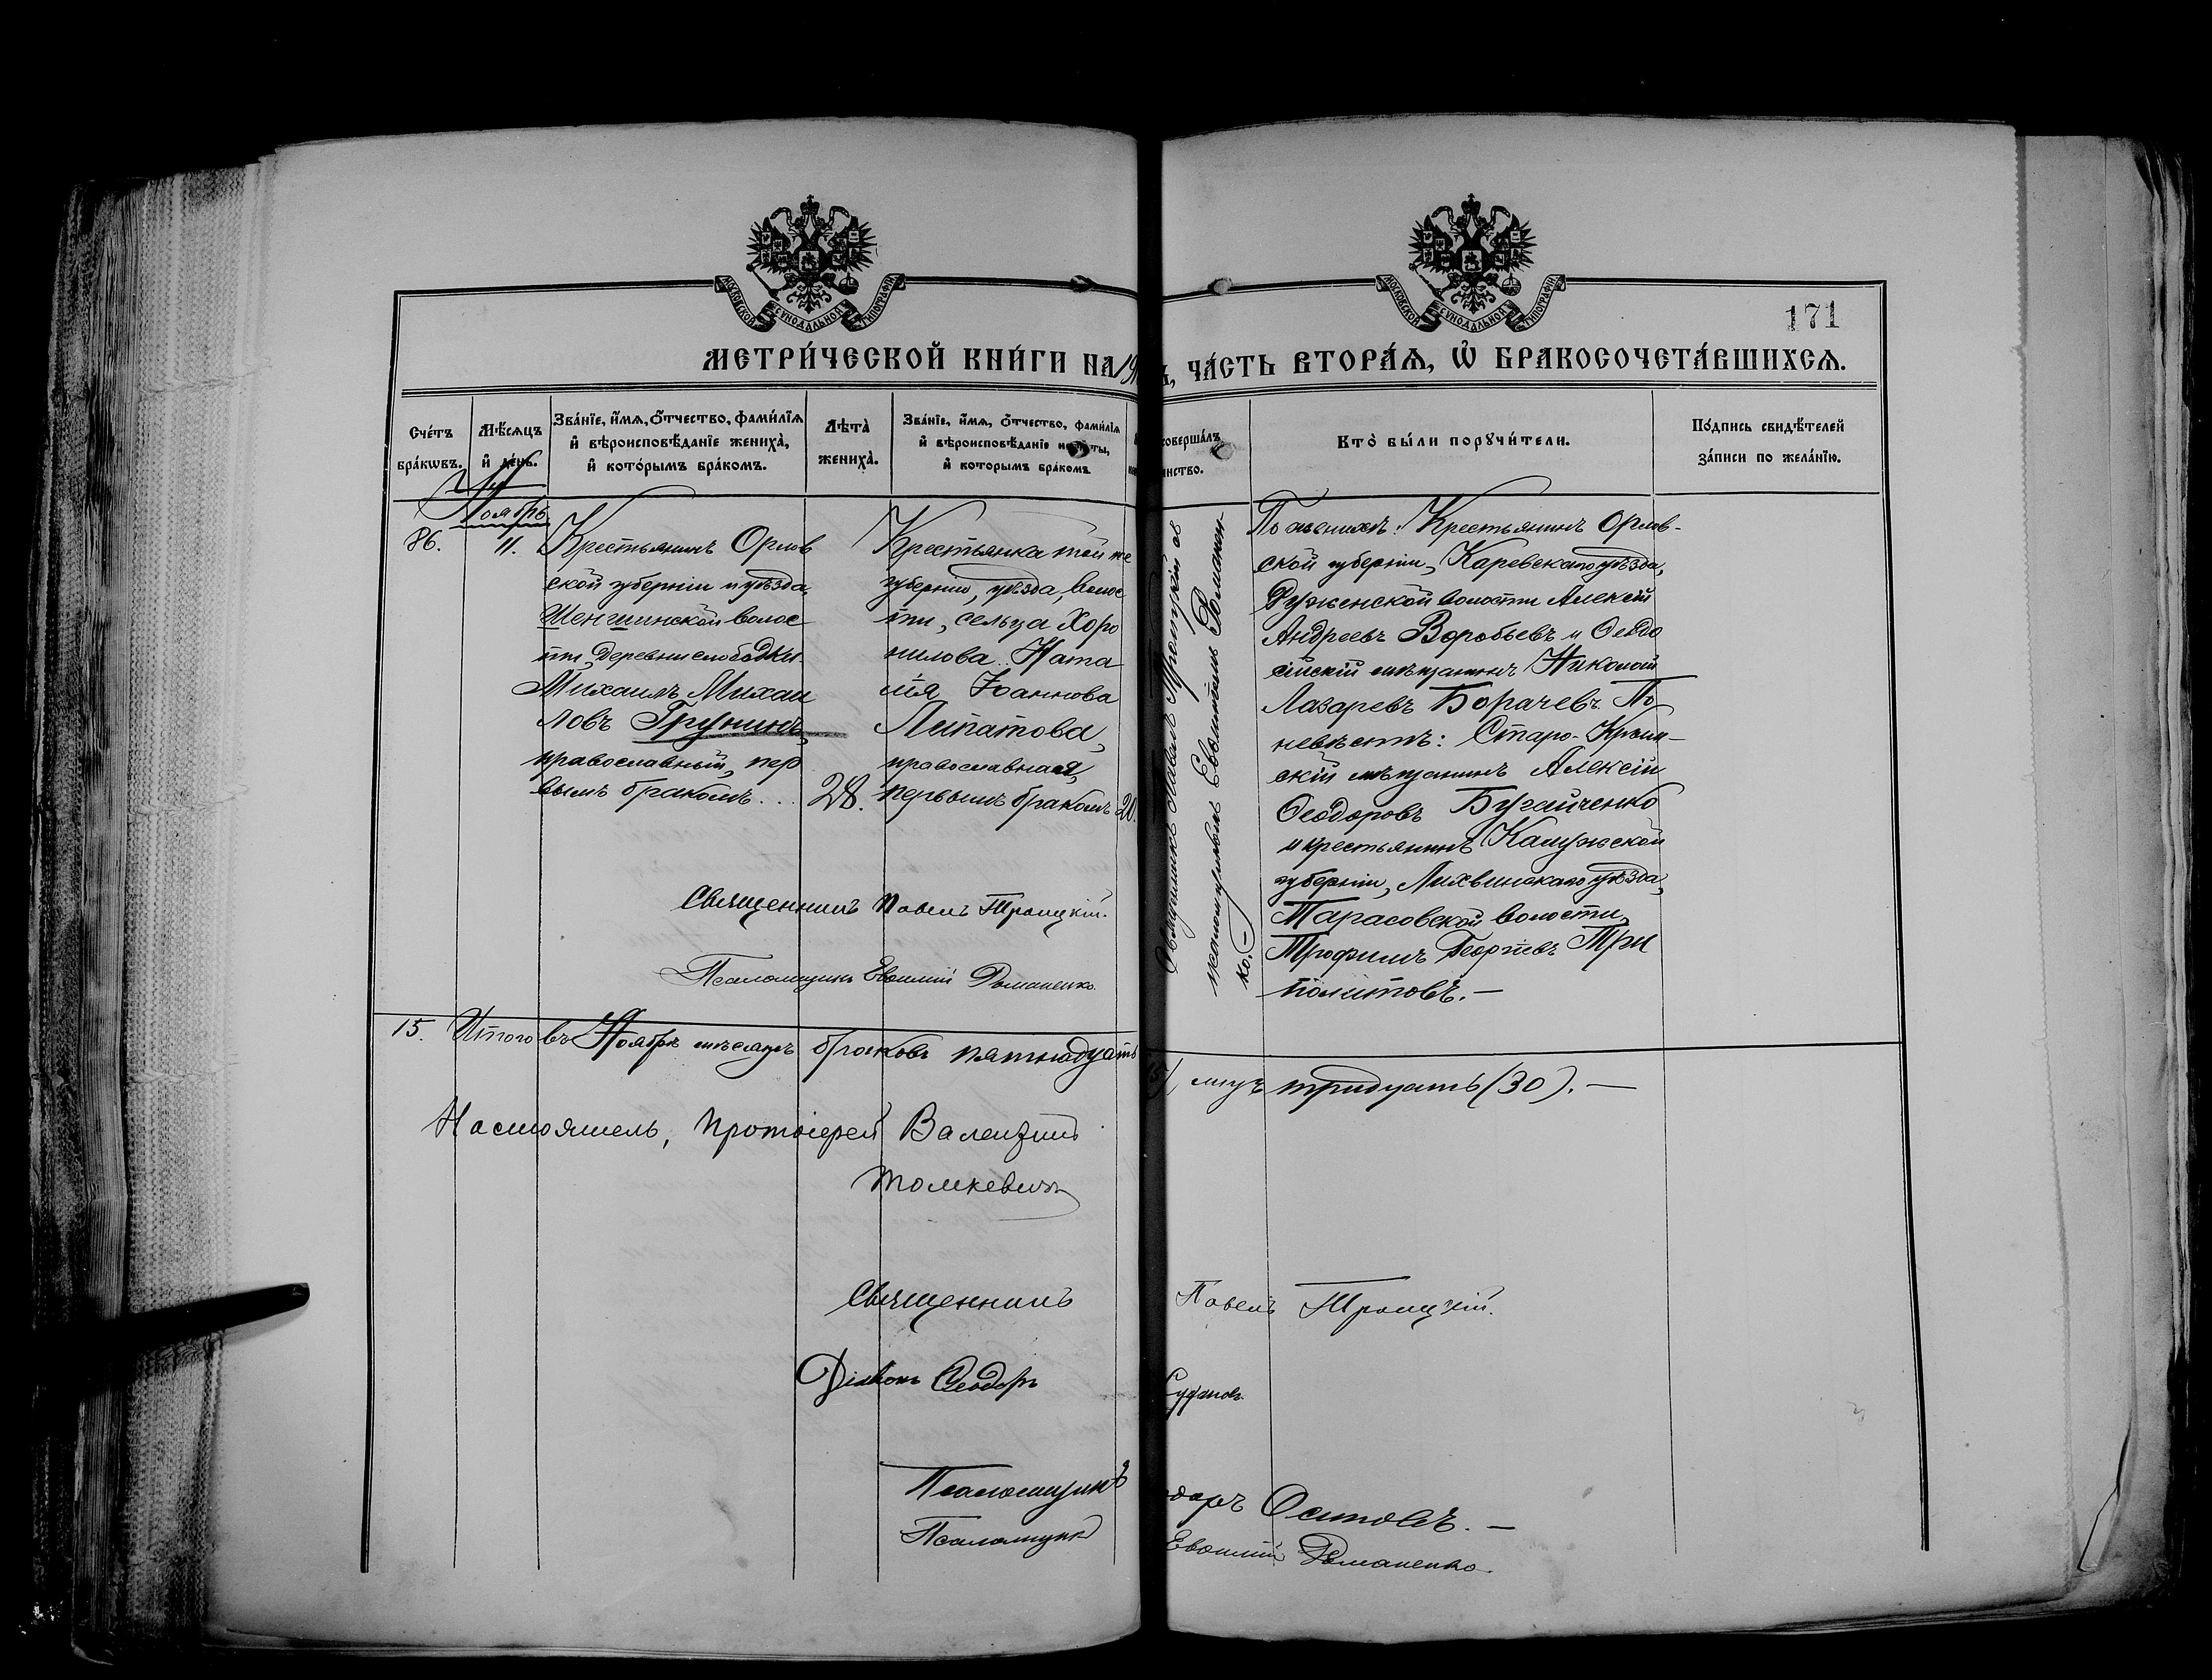 МОСКОВСКОЙ СУНОДАЛЬНОЙ ТИПОГРАФІИ
МОСКОВСКОЙ СУНОДАЛЬНОЙ ТИПОГРАФІИ
171
МЕТРИ́ЧЕСКОЙ КНИ́ГИ НА 19
ЧА́СТЬ ВТОРА́Ѧ, Ѡ БРАКОСОЧЕТА́ВШИХСѦ.
Сче́тъ бра́кѡвъ.
Мѣ́сѧцъ и҆ де́нь.
Зва́нїе, и҆́мѧ, ѻ҆́тчество, фами́лїѧ
и҆ вѣроисповѣ́данїе жениха̀,
и҆ кото́рымъ бра́комъ.
Лѣта̀ жениха̀.
Зва́нїе, и҆́мѧ, ѻ҆́тчество, фами́лїѧ
и҆ вѣроисповѣ́данїе невѣсты,
и҆ которымъ бра́комъ
соверша́лъ
инство.
Кто̀ бы́ли порꙋчи́тели.
По́дпись свидѣ́телей
за́писи по жела́нїю.
Ноябрь
86.
11.
Крестьянинъ Орлов
ской губерніи и уѣзда,
Шеншинской волос
ти, деревни слободки
Михаилъ Михаи
ловъ Грунинъ,
православный, пер
вымъ бракомъ...
28.
Крестьянка той же
губерніи, уѣзда, волос
ти, сельца Хоро
шилова Ната
лія Іоаннова
Липатова,
православная,
первымъ бракомъ
20.
Священникъ Павелъ Троицкій съ
псаломщикомъ Евфиміемъ Романен-
ко.-
По женихѣ: Крестьянинъ Орлов-
ской губерніи, Каревскаго уѣзда,
Руженской волости Алексій
Андреевъ Воробьевъ и Ѳеодо
сійскій мѣщанинъ Николай
Лазаревъ Борачевъ. По
невѣстѣ: Старо-Крым-
скій мѣщанинъ Алексій
Ѳеодоровъ Бугайченко
и крестьянинъ Калужской
губерніи, Лихвинскаго уѣзда,
Тарасовской волости,
Трофимъ Георгіевъ Три
политовъ.-
Священникъ Павелъ Троицкій.
Псаломщикъ Евфимій Романенко
15. Итого въ Ноябрѣ мѣсяцѣ браковъ пятнадцать
15) лицъ тридцать (30).-
Настоятель, Протоіерей Валентинъ
Томкевичъ
Священникъ Павелъ Троицкій.
Діаконъ Ѳеодоръ
Псаломщикъ
доръ Осиповъ.-
Псаломщикъ Евфимій Романенко.